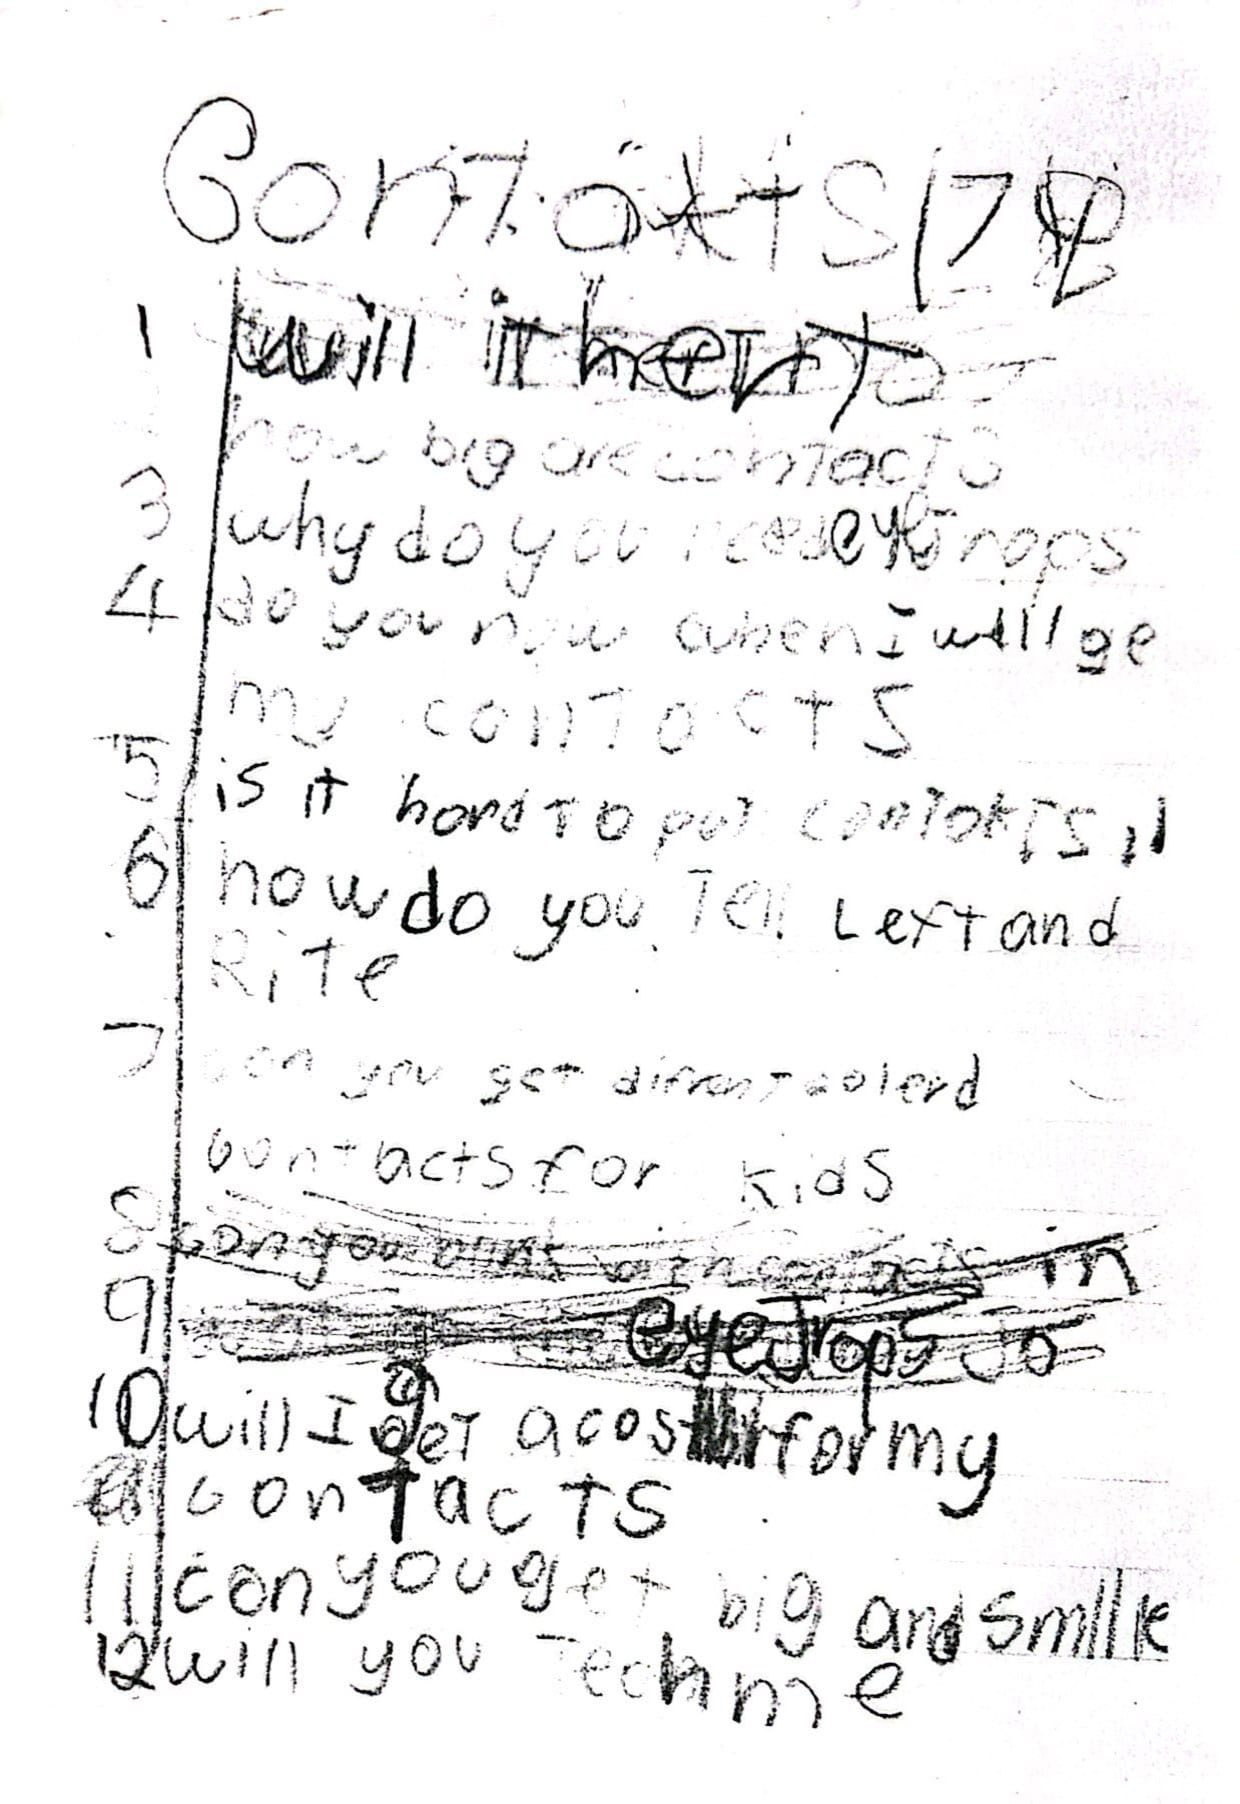 Contakts
1 will it hert
how big are contacts
3 why do you need eye
4 do you now when I will ge
my contacts
5 is it hard to put contakts in
6 how do you Tell Left and
Rite
7 can you get diffrent colerd
contacts for kids
8 can you in
9 eyedrops
10 will I get a for my
contacts
11 can you get big and
12 will you Tech me